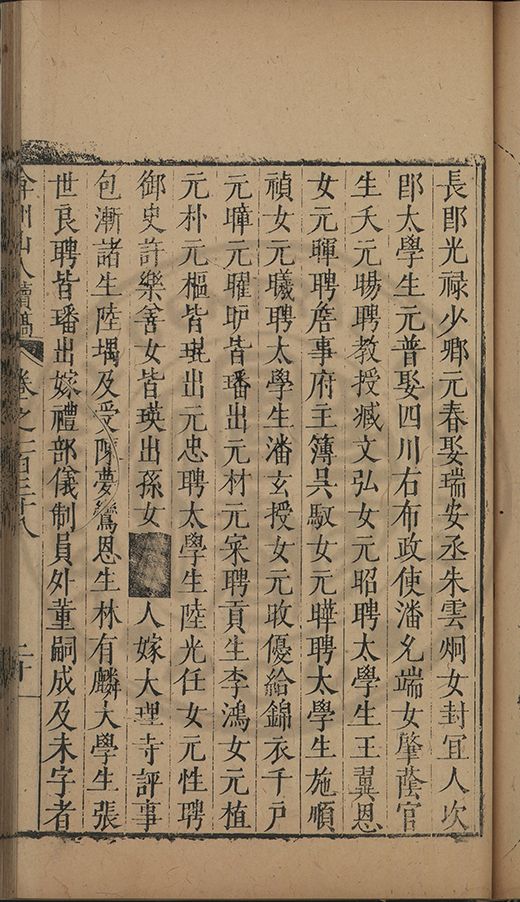 長即光祿少卿元春娶瑞安丞朱雲炯女封宜人次
即太學生元普娶四川右布政使潘允端女肇蔭官
生夭元暘聘教授臧文弘女元昭聘太學生王翼恩
女元暉聘詹事府主簿吳馭女元曄聘太學生施順
禎女元曦聘太學生潘玄授女元旼優給錦衣千戶
元暲元曜皆璠出元材元寀聘貢生李鴻女元植
元朴元樞皆琨出元忠聘太學生陸光任女元性聘
御史許樂善女皆瑛出孫女人嫁大理寺評事
包漸諸生陸堣及受陳夢鸞恩生林有麟大學生張
世良聘皆璠出嫁禮部儀制員外董嗣成及未字者
弇州山人續稿 卷之一百三十八